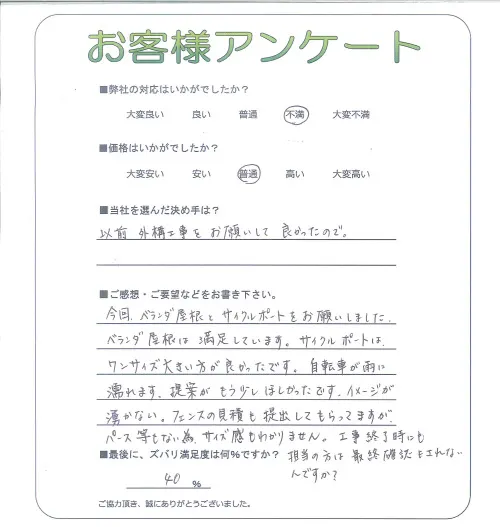 お客様アンケート
■弊社の対応はいかがでしたか?
大変良い 良い 普通 不満 大変不満
■価格はいかがでしたか?
大変安い 安い 普通 高い 大変高い
■当社を選んだ決め手は?
以前 外構工事を お願いして 良かったので。
■ご感想・ご要望などをお書き下さい。
今回、ベランダ屋根と サイクルポートをお願いしました。
ベランダ屋根は 満足しています。サイクルポートは、
ワンサイズ大きい方が良かったです。自転車が雨に
濡れます。提案が もう少しほしかったです。イメージが
湧かない。フェンスの見積も提出してもらってますが、
パース等もない為、サイズ感もわかりません。工事終了時にも
■最後に、ズバリ満足度は何%ですか? 担当の方は 最終確認をとれない
んですか?
40 %
ご協力頂き、誠にありがとうございました。